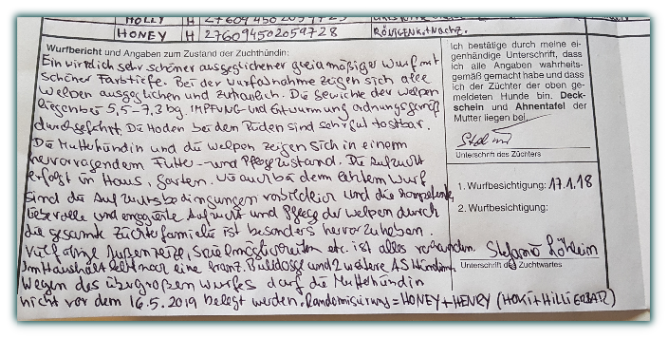 HOLLY H
HONEY H 276094502059728 RÖNTGENK.+Nachz.
Wurfbericht und Angaben zum Zustand der Zuchthündin:
Ein wirklich sehr schöner ausgeglichener gleichmäßiger Wurf mit
schöner Farbtiefe. Bei der Wurfabnahme zeigen sich alle
Welpen ausgeglichen und zutraulich. Die Gewichte der Welpen
liegen bei 5,5-7,3 kg. IMPFUNG und Entwurmung ordnungsgemäß
durchgeführt. Die Hoden bei den Rüden sind sehr gut tastbar.
Die Mutterhündin und die Welpen zeigen sich in einem
hervorragendem Futter- und Pflegezustand. Die Aufzucht
erfolgt in Haus, Garten. Wie auch bei dem Wurf
sind die Aufzuchtbedingungen vorbildlich und die kompetente,
liebevolle und engagierte Aufzucht und Pflege der Welpen durch
die gesamte Züchterfamilie ist besonders hervorzuheben.
Vielfältige Außenreize, Spielmöglichkeiten etc. ist alles vorhanden
Im Haushalt lebt noch eine franz. Bulldogge und 2 weitere AS Hündinnen
Wegen des übergroßen Wurfes darf die Mutterhündin
nicht vor dem 16.5.2019 belegt werden. Randomisierung = HONEY + HENRY
Ich bestätige durch meine ei-
genhändige Unterschrift, dass
ich alle Angaben wahrheits-
gemäß gemacht habe und dass
ich der Züchter der oben ge-
meldeten Hunde bin. Deck-
schein und Ahnentafel der
Mutter liegen bei.
Unterschrift des Züchters
1. Wurfbesichtigung: 17.1.18
2. Wurfbesichtigung:
Unterschrift des Zuchtwartes